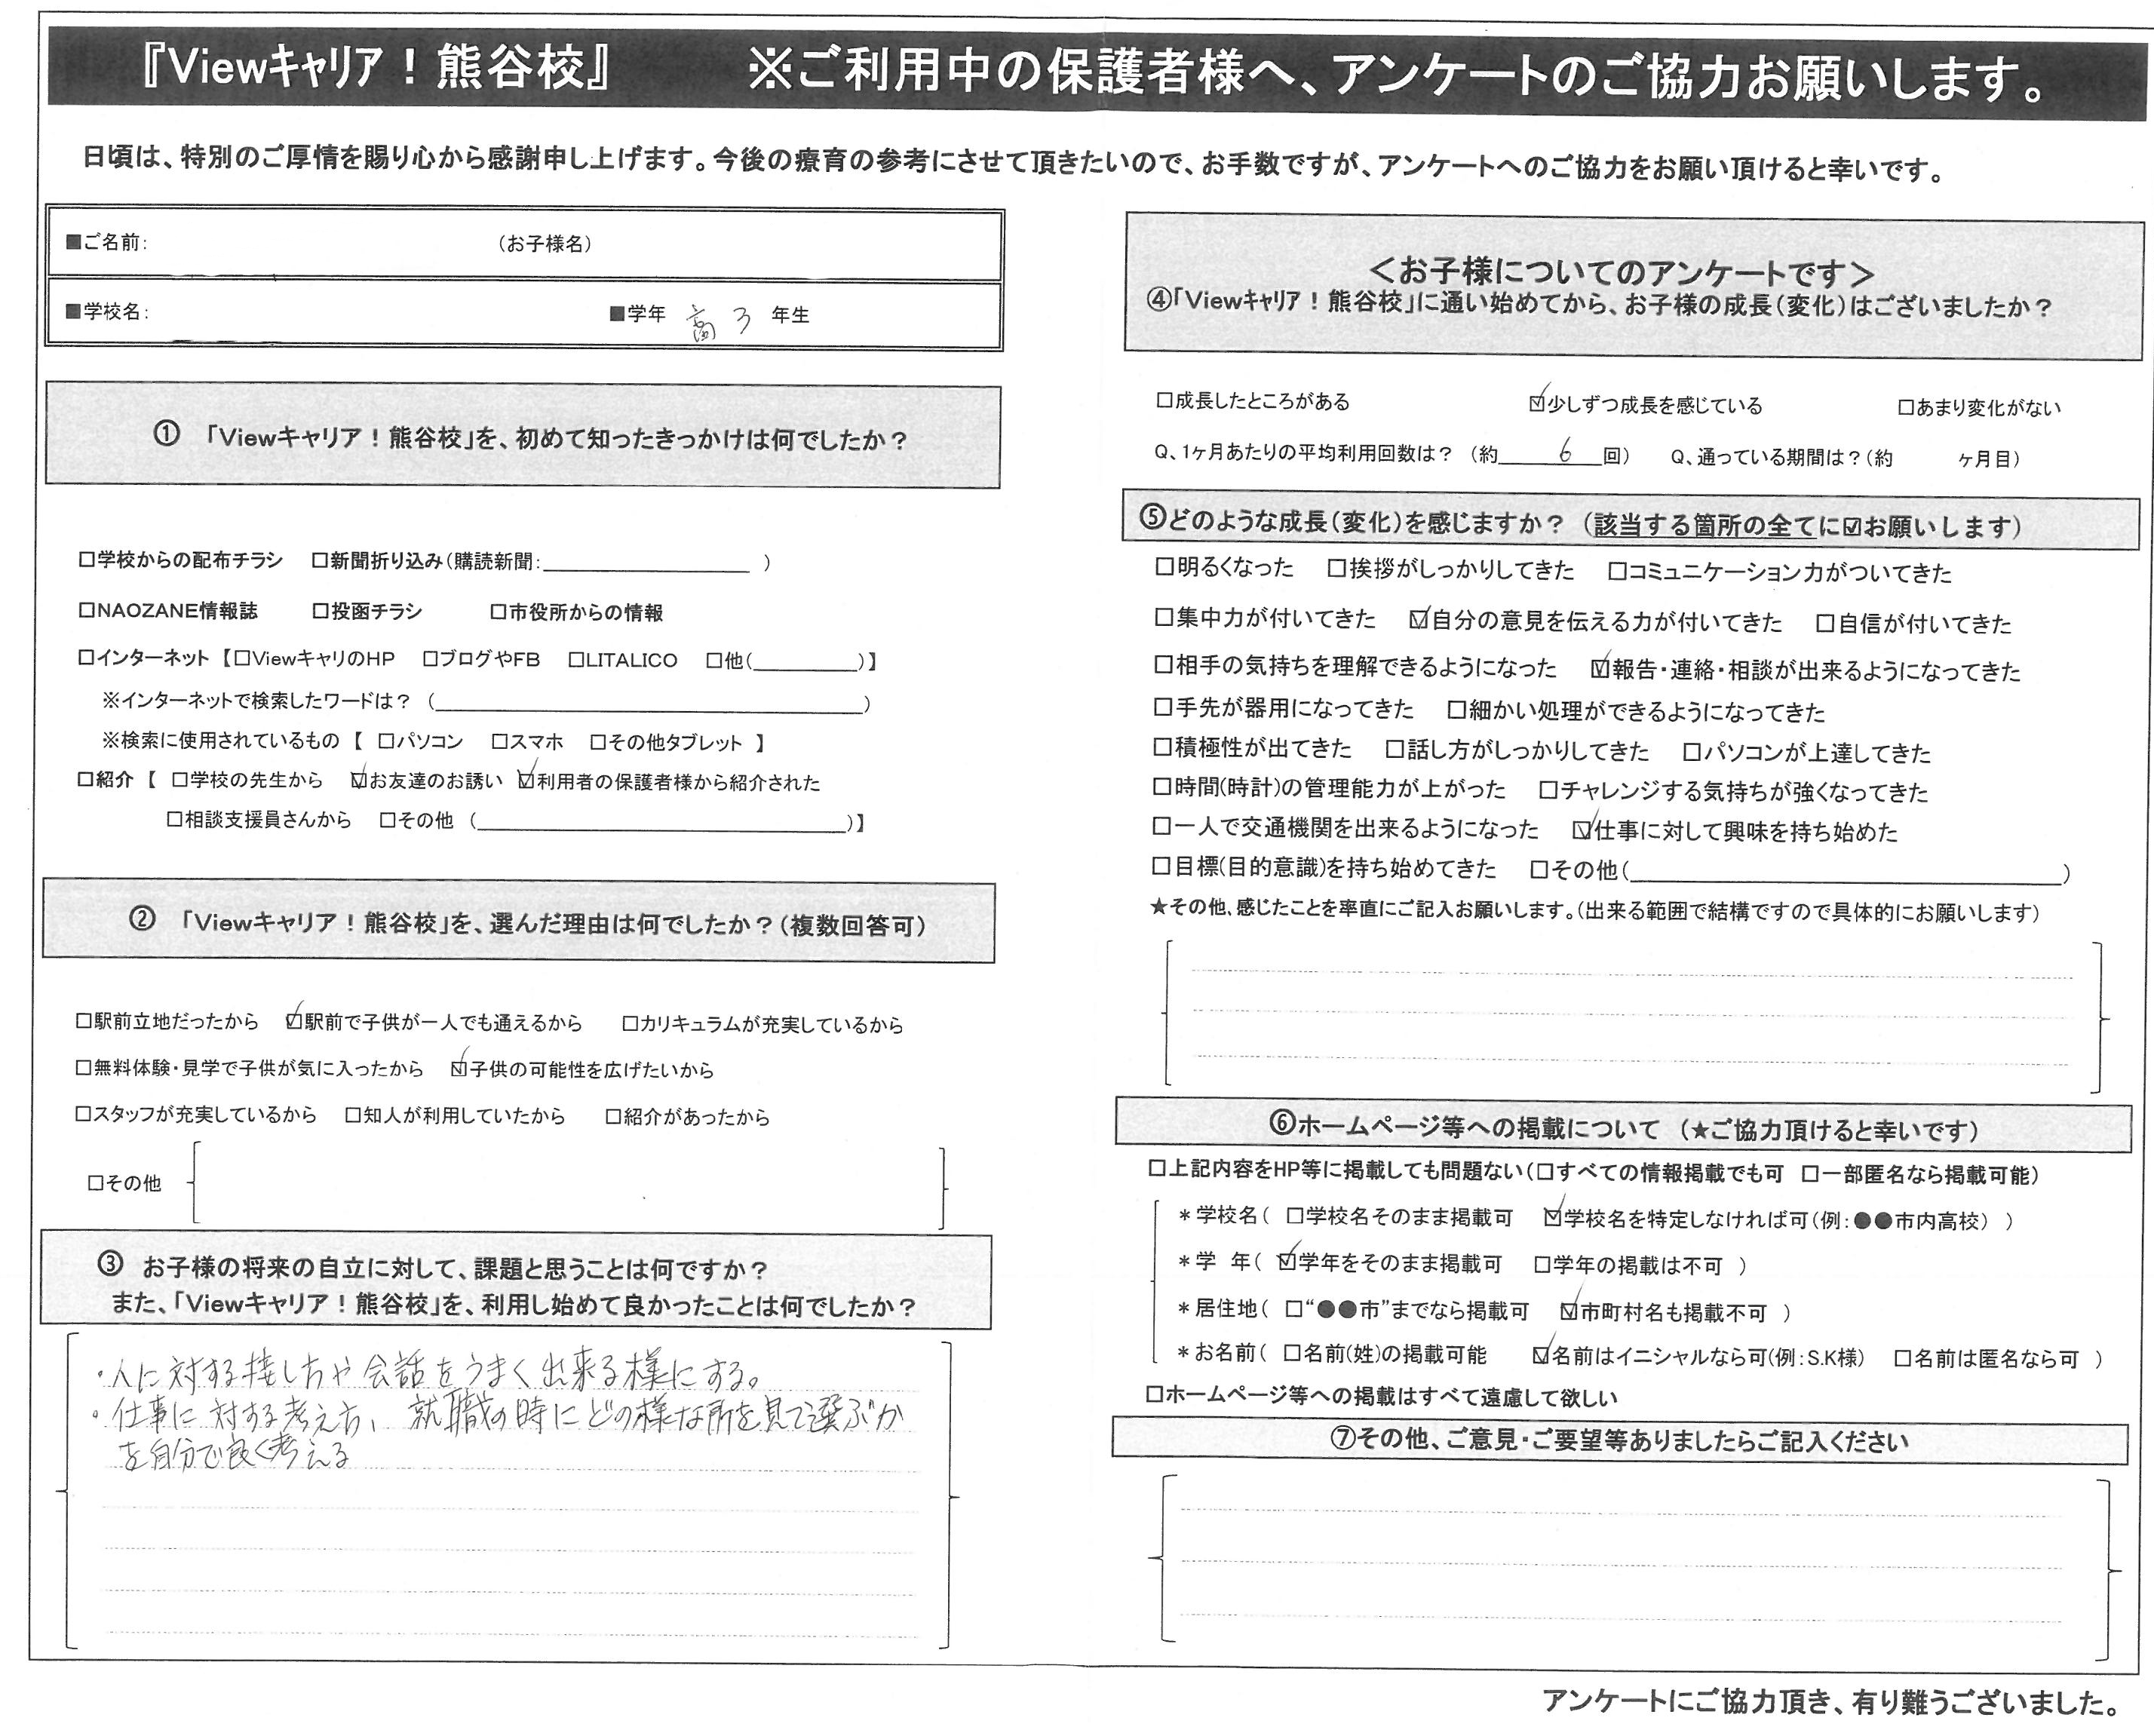 『Viewキャリア！熊谷校』　※ご利用中の保護者様へ、アンケートのご協力お願いします。
日頃は、特別のご厚情を賜り心から感謝申し上げます。今後の療育の参考にさせて頂きたいので、お手数ですが、アンケートへのご協力をお願い頂けると幸いです。
■ご名前：　（お子様名）
■学校名：　■学年 高3 年生
① 「Viewキャリア！熊谷校」を、初めて知ったきっかけは何でしたか？
□学校からの配布チラシ　□新聞折り込み（購読新聞：＿＿＿＿＿＿）
□NAOZANE情報誌　□投函チラシ　□市役所からの情報
□インターネット【□ViewキャリのHP　□ブログやFB　□LITALICO　□他（＿＿＿＿）】
※インターネットで検索したワードは？（＿＿＿＿＿＿＿＿＿＿＿＿）
※検索に使用されているもの【 □パソコン　□スマホ　□その他タブレット 】
□紹介【 □学校の先生から　☑お友達のお誘い　☑利用者の保護者様から紹介された
□相談支援員さんから　□その他（＿＿＿＿＿＿＿＿＿＿）】
② 「Viewキャリア！熊谷校」を、選んだ理由は何でしたか？（複数回答可）
□駅前立地だったから　☑駅前で子供が一人でも通えるから　□カリキュラムが充実しているから
□無料体験・見学で子供が気に入ったから　☑子供の可能性を広げたいから
□スタッフが充実しているから　□知人が利用していたから　□紹介があったから
□その他
③ お子様の将来の自立に対して、課題と思うことは何ですか？
また、「Viewキャリア！熊谷校」を、利用し始めて良かったことは何でしたか？
・人に対する接し方や会話をうまく出来る様にする。
・仕事に対する考え方、就職の時にどの様な所を見て選ぶか
を自分で良く考える
＜お子様についてのアンケートです＞
④「Viewキャリア！熊谷校」に通い始めてから、お子様の成長（変化）はございましたか？
□成長したところがある　☑少しずつ成長を感じている　□あまり変化がない
Q、1ヶ月あたりの平均利用回数は？（約 6 回）　Q、通っている期間は？（約　ヶ月目）
⑤どのような成長（変化）を感じますか？（該当する箇所の全てに☑お願いします）
□明るくなった　□挨拶がしっかりしてきた　□コミュニケーション力がついてきた
□集中力が付いてきた　☑自分の意見を伝える力が付いてきた　□自信が付いてきた
□相手の気持ちを理解できるようになった　☑報告・連絡・相談が出来るようになってきた
□手先が器用になってきた　□細かい処理ができるようになってきた
□積極性が出てきた　□話し方がしっかりしてきた　□パソコンが上達してきた
□時間（時計）の管理能力が上がった　□チャレンジする気持ちが強くなってきた
□一人で交通機関を出来るようになった　☑仕事に対して興味を持ち始めた
□目標（目的意識）を持ち始めてきた　□その他（＿＿＿＿＿＿＿＿＿＿＿＿）
★その他、感じたことを率直にご記入お願いします。（出来る範囲で結構ですので具体的にお願いします）
⑥ホームページ等への掲載について（★ご協力頂けると幸いです）
□上記内容をHP等に掲載しても問題ない（□すべての情報掲載でも可　□一部匿名なら掲載可能）
＊学校名（ □学校名そのまま掲載可　☑学校名を特定しなければ可（例：●●市内高校） ）
＊学　年（ ☑学年をそのまま掲載可　□学年の掲載は不可 ）
＊居住地（ □“●●市”までなら掲載可　☑市町村名も掲載不可 ）
＊お名前（ □名前（姓）の掲載可能　☑名前はイニシャルなら可（例：S.K様）　□名前は匿名なら可 ）
□ホームページ等への掲載はすべて遠慮して欲しい
⑦その他、ご意見・ご要望等ありましたらご記入ください
アンケートにご協力頂き、有り難うございました。